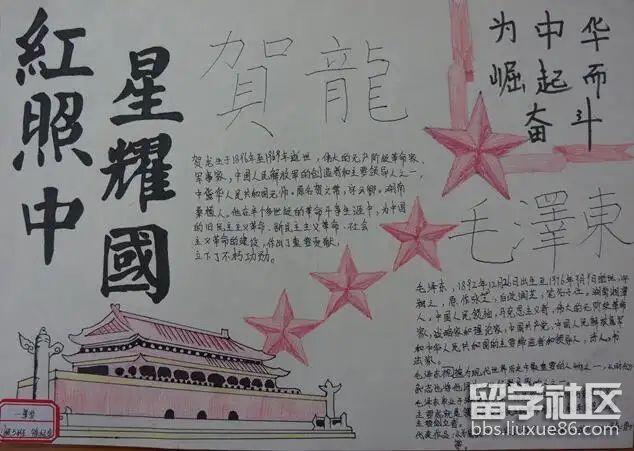 紅星照耀中國
賀龍
为中华
崛起而
奋斗
贺龙生于1896年至1969年逝世，伟大的无产阶级革命家、
军事家，中国人民解放军的创造者和主要领导人之一，
中华人民共和国元帅。原名贺文常，字云卿。湖南
桑植人。他在半个多世纪的革命斗争生涯中，为中国
的旧民主主义革命、新民主主义革命、社会
主义革命的建设，作出了重要贡献，
立下了不朽功劲。
毛澤東
毛泽东，1892年12月26日出生至1976年9月9日逝世，字
润之，原作咏芝，后改润芝，笔名子任。湖南湘潭
人。中国人民领袖，马克思主义者，伟大的无产阶级革命
家，战略家和理论家，中国共产党、中国人民解放军
和中华人民共和国的主要缔造者和领导人，诗人，书
法家。
毛泽东被视为现代世界历史中最重要的人物之一，
杂志也将他
毛泽东
主要成就是
主要创立者。
代表作品：
一等奖
留学社区
bbs.liuxue86.com